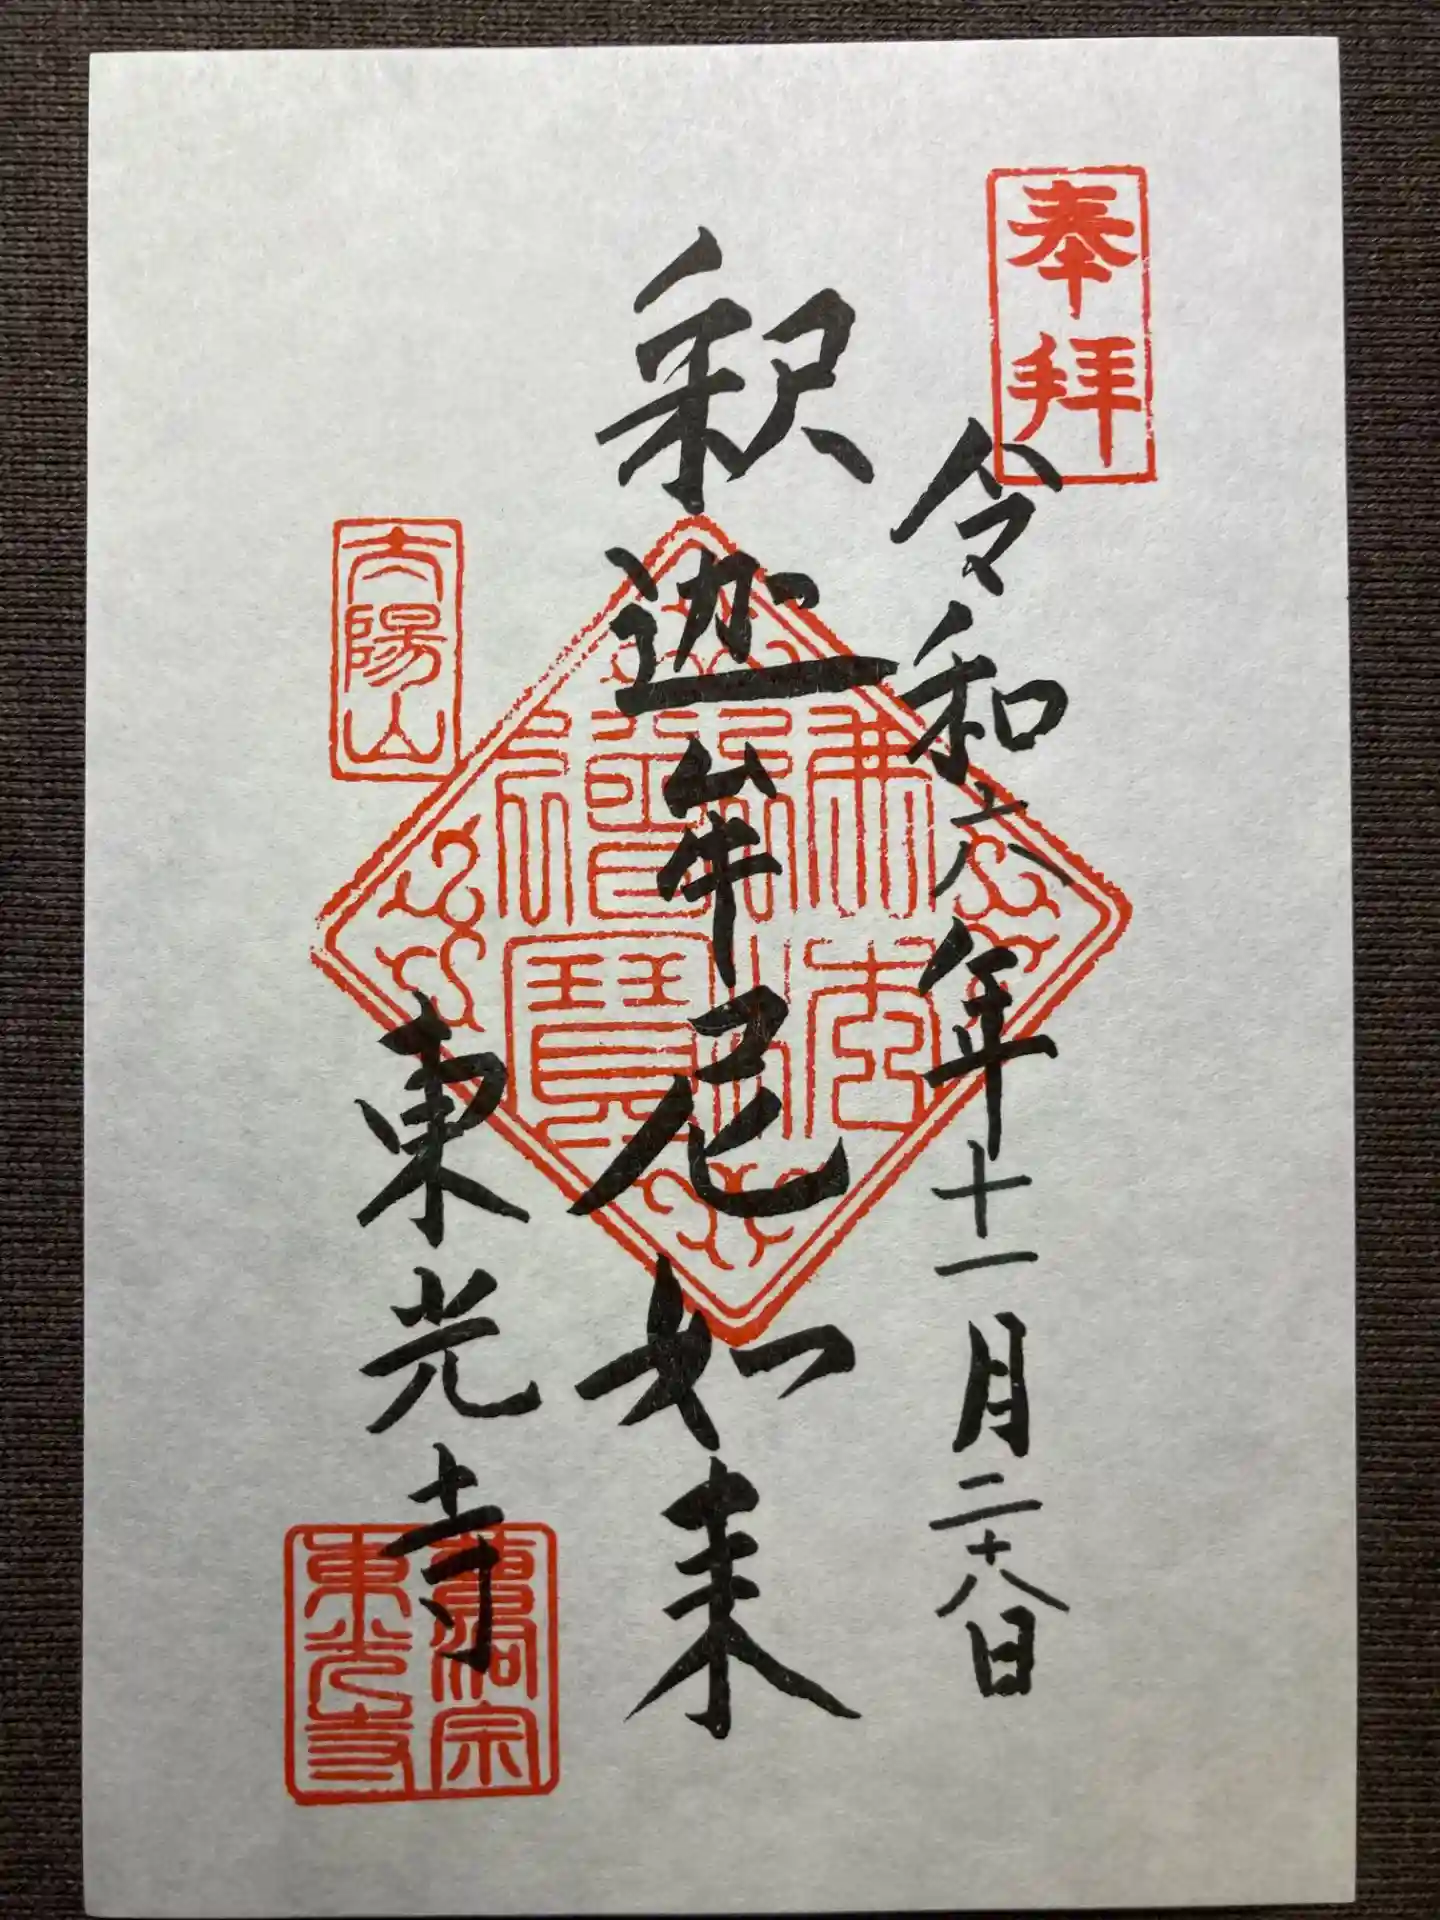 奉拝
令和六年十一月二十八日
釈迦牟尼如来
佛法僧寶
大陽山
東光寺
曹洞宗
東光寺